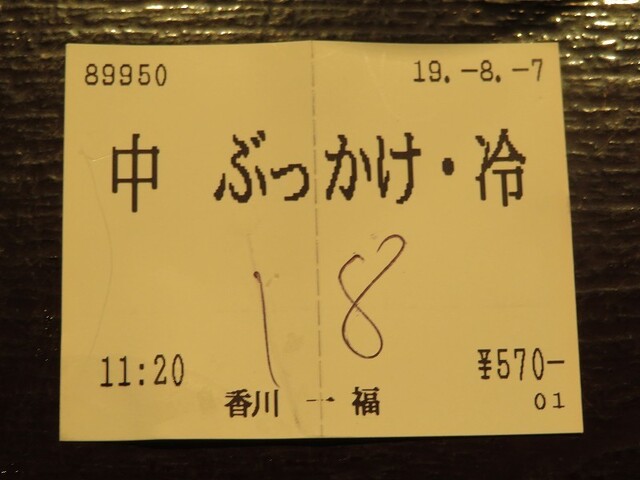 89950 19.-8.-7
中 ぶっかけ・冷
18
11:20 ¥570-
香川 一福 01